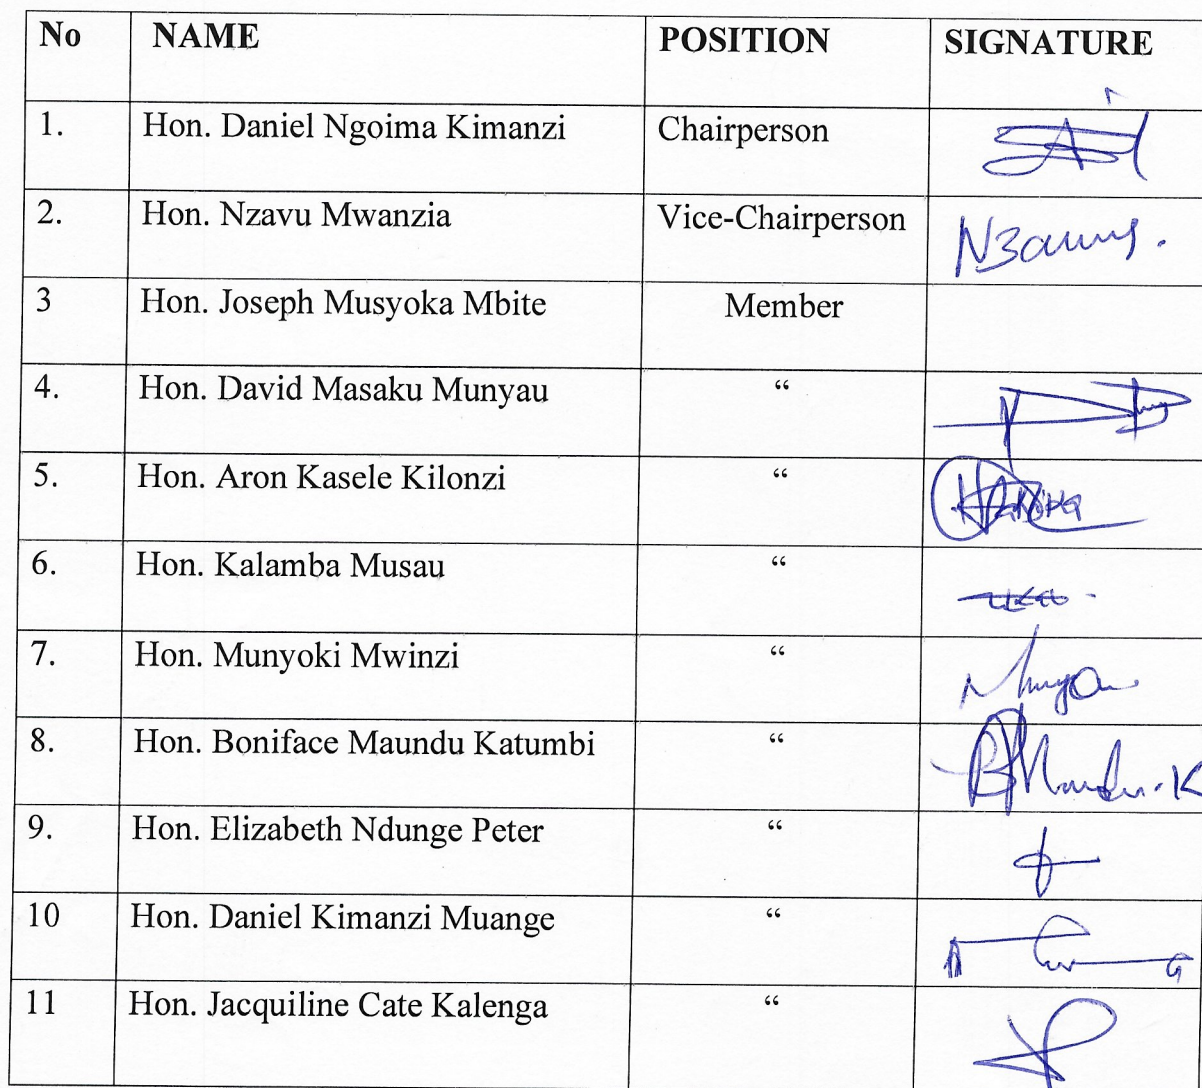 No NAME POSITION SIGNATURE
1. Hon. Daniel Ngoima Kimanzi Chairperson
2. Hon. Nzavu Mwanzia Vice-Chairperson
3 Hon. Joseph Musyoka Mbite Member
4. Hon. David Masaku Munyau “
5. Hon. Aron Kasele Kilonzi “
6. Hon. Kalamba Musau “
7. Hon. Munyoki Mwinzi “
8. Hon. Boniface Maundu Katumbi “
9. Hon. Elizabeth Ndunge Peter “
10 Hon. Daniel Kimanzi Muange “
11 Hon. Jacquiline Cate Kalenga “